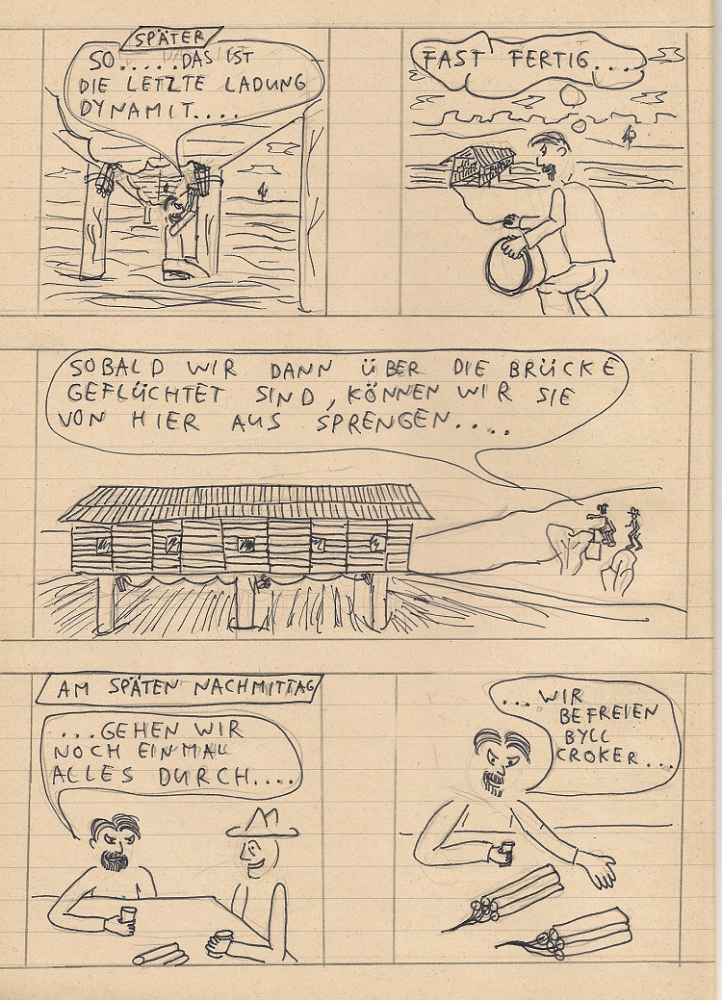 SPÄTER
SO.....DAS IST
DIE LETZTE LADUNG
DYNAMIT....
FAST FERTIG....
SOBALD WIR DANN ÜBER DIE BRÜCKE
GEFLÜCHTET SIND, KÖNNEN WIR SIE
VON HIER AUS SPRENGEN....
AM SPÄTEN NACHMITTAG
...GEHEN WIR
NOCH EINMAL
ALLES DURCH....
...WIR
BEFREIEN
BYLL
CROKER...